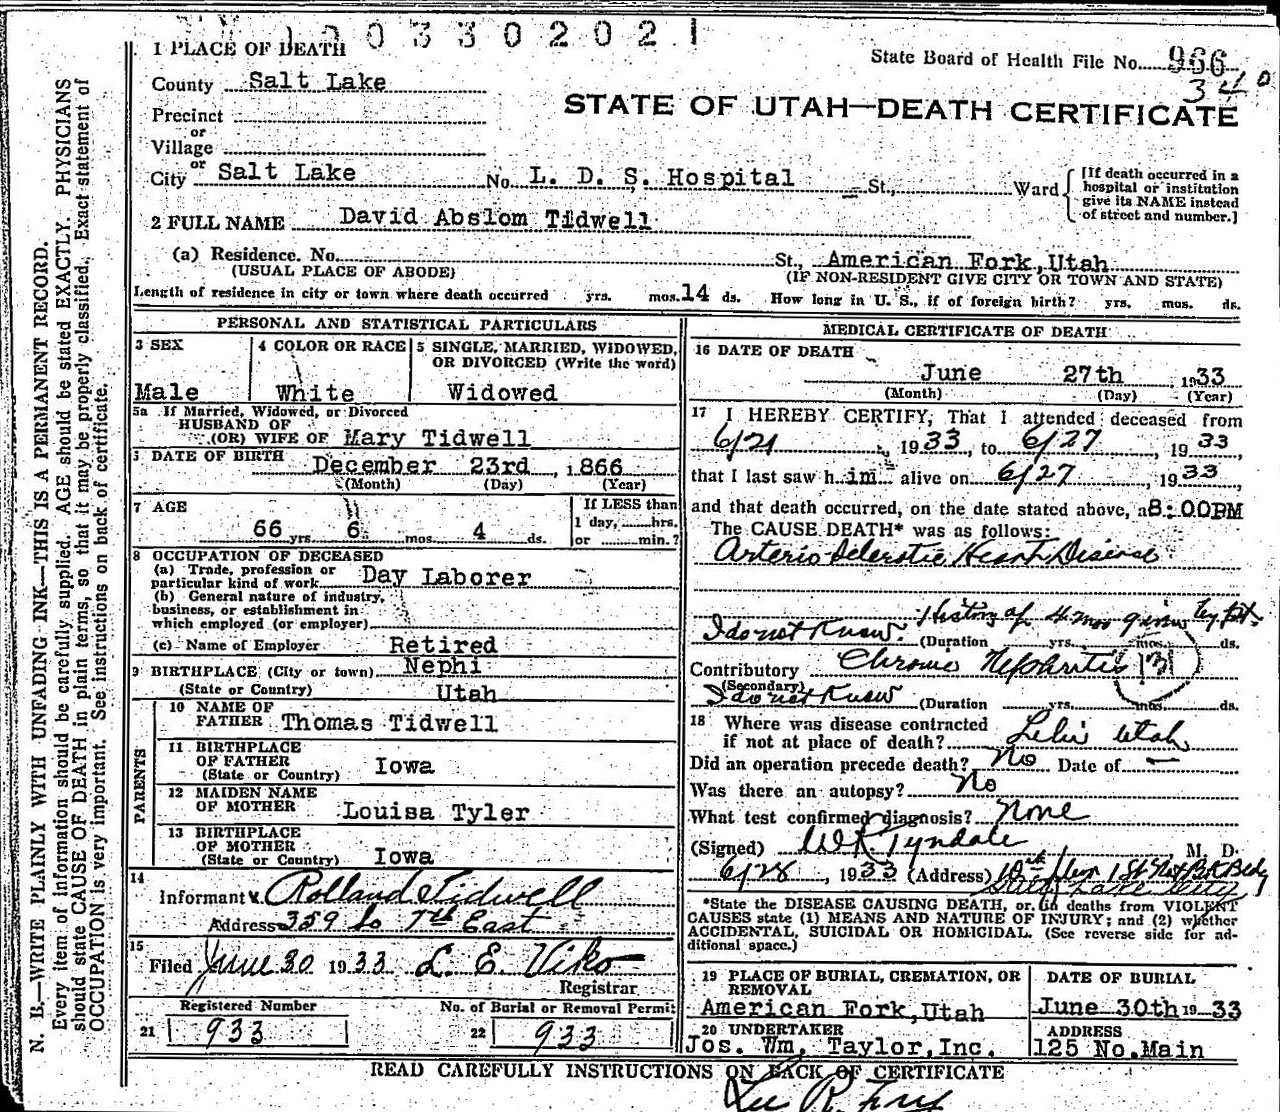 0033020 21
State Board of Health File No. 966
340
STATE OF UTAH—DEATH CERTIFICATE
1 PLACE OF DEATH
County Salt Lake
Precinct
or
Village
or
City Salt Lake No. L. D. S. Hospital St., Ward
[If death occurred in a
hospital or institution
give its NAME instead
of street and number.]
2 FULL NAME David Abslom Tidwell
(a) Residence. No. St., American Fork, Utah
(USUAL PLACE OF ABODE) (IF NON-RESIDENT GIVE CITY OR TOWN AND STATE)
Length of residence in city or town where death occurred yrs. mos. 14 ds. How long in U. S., if of foreign birth? yrs. mos. ds.
PERSONAL AND STATISTICAL PARTICULARS
3 SEX 4 COLOR OR RACE 5 SINGLE, MARRIED, WIDOWED,
OR DIVORCED (Write the word)
Male White Widowed
5a If Married, Widowed, or Divorced
HUSBAND OF
(OR) WIFE OF Mary Tidwell
DATE OF BIRTH December 23rd, 1866
(Month) (Day) (Year)
7 AGE If LESS than
1 day, hrs.
66 yrs. 6 mos. 4 ds. or min.?
8 OCCUPATION OF DECEASED
(a) Trade, profession or
particular kind of work Day Laborer
(b) General nature of industry,
business, or establishment in
which employed (or employer)
(c) Name of Employer Retired
9 BIRTHPLACE (City or town) Nephi
(State or Country) Utah
PARENTS
10 NAME OF
FATHER Thomas Tidwell
11 BIRTHPLACE
OF FATHER
(State or Country) Iowa
12 MAIDEN NAME
OF MOTHER Louisa Tyler
13 BIRTHPLACE
OF MOTHER
(State or Country) Iowa
14
Informant Rolland Tidwell
Address 359 So 7th East
15
Filed June 30 1933 L. E. Viko
Registrar
Registered Number No. of Burial or Removal Permit
21 933 22 933
MEDICAL CERTIFICATE OF DEATH
16 DATE OF DEATH
June 27th, 1933
(Month) (Day) (Year)
17 I HEREBY CERTIFY, That I attended deceased from
6/21, 1933, to 6/27, 1933,
that I last saw h im alive on 6/27, 1933,
and that death occurred, on the date stated above, a 8:00PM
The CAUSE DEATH* was as follows:
Arterio Sclerotic Heart Disease
History of 4 mos given by pt.
I do not Know. (Duration yrs. mos. ds.
Contributory Chronic Nephritis 131
(Secondary)
I do not Know (Duration yrs. mos. ds.
18 Where was disease contracted
if not at place of death? Lehi Utah
Did an operation precede death? No Date of —
Was there an autopsy? No
What test confirmed diagnosis? None
(Signed) W R Tyndale M. D.
6/28, 1933 (Address) 10th floor 1st Nat Bk Bldg
Salt Lake City
*State the DISEASE CAUSING DEATH, or, in deaths from VIOLENT
CAUSES state (1) MEANS AND NATURE OF INJURY; and (2) whether
ACCIDENTAL, SUICIDAL OR HOMICIDAL. (See reverse side for ad-
ditional space.)
19 PLACE OF BURIAL, CREMATION, OR
REMOVAL
American Fork, Utah
DATE OF BURIAL
June 30th 19 33
20 UNDERTAKER
Jos. Wm. Taylor, Inc.
ADDRESS
125 No. Main
READ CAREFULLY INSTRUCTIONS ON BACK OF CERTIFICATE
N. B.—WRITE PLAINLY WITH UNFADING INK—THIS IS A PERMANENT RECORD.
Every item of information should be carefully supplied. AGE should be stated EXACTLY. PHYSICIANS
should state CAUSE OF DEATH in plain terms, so that it may be properly classified. Exact statement of
OCCUPATION is very important. See instructions on back of certificate.